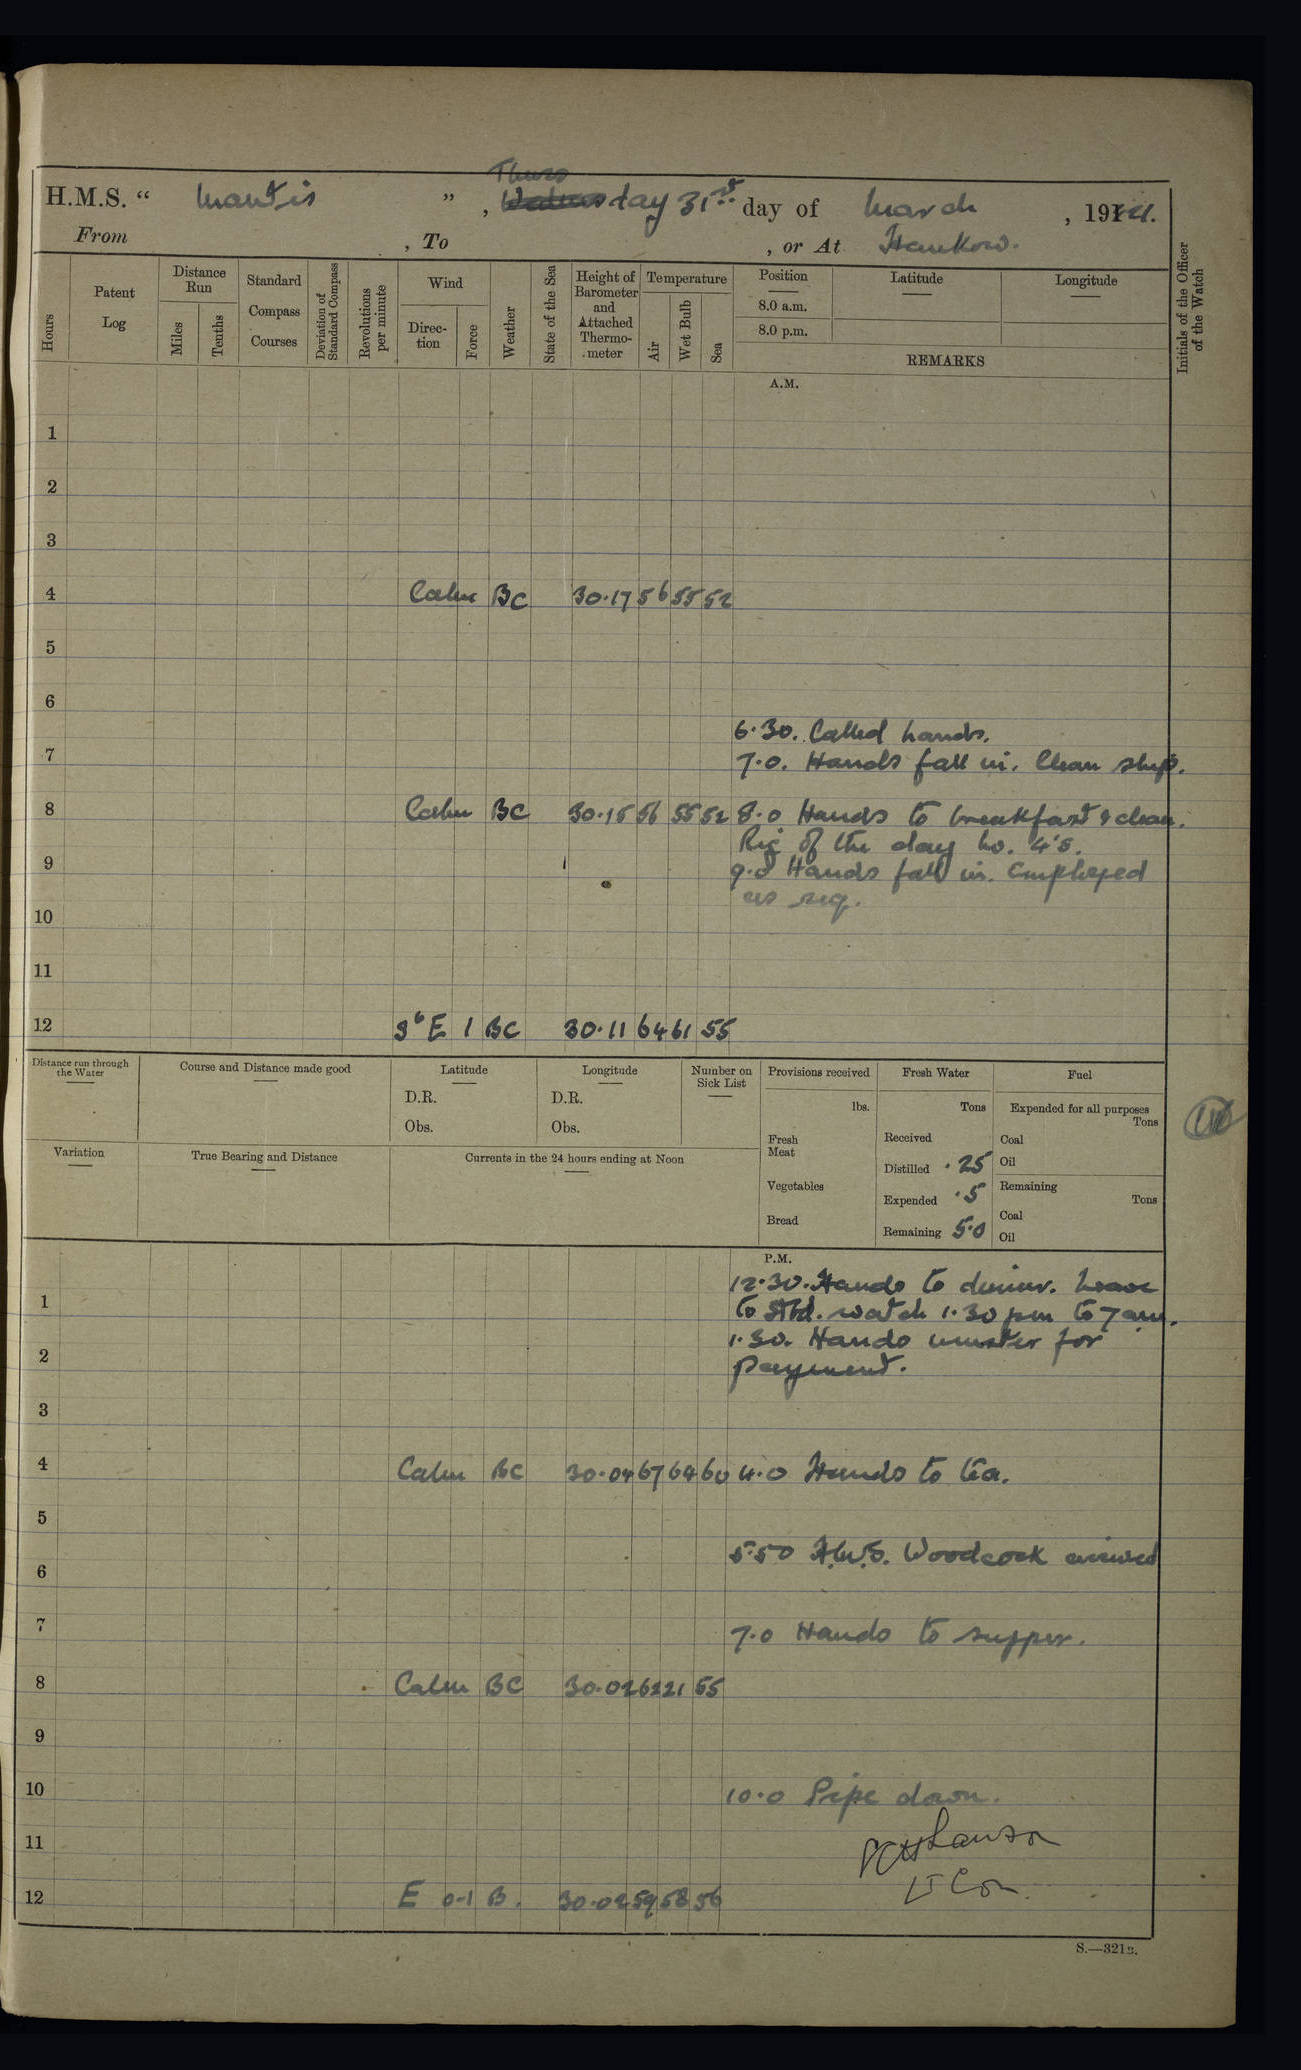 H.M.S. “ Mantis ” , Thurs Wednesday 31st day of March , 1921.
From , To , or At Hankow.
Hours
Patent Log
Distance Run
Miles
Tenths
Standard Compass Courses
Deviation of Standard Compass
Revolutions per minute
Wind
Direc-tion
Force
Weather
State of the Sea
Height of Barometer and Attached Thermo-meter
Temperature
Air
Wet Bulb
Sea
Position
8.0 a.m.
8.0 p.m.
Latitude
Longitude
REMARKS
Initials of the Officer of the Watch
A.M.
1
2
3
4 Calm BC 30.17 56 55 52
5
6
6.30. Called hands.
7 7.0. Hands fall in. Clean ship.
8 Calm BC 30.15 56 55 52 8.0 Hands to breakfast & clean.
Rig of the day No. 4's.
9 9.0 Hands fall in. Employed
as req.
10
11
12 SbE 1 BC 30.11 64 61 55
Distance run through the Water
Course and Distance made good
Latitude
D.R.
Obs.
Longitude
D.R.
Obs.
Number on Sick List
Provisions received
lbs.
Fresh Meat
Vegetables
Bread
Fresh Water
Tons
Received
Distilled .25
Expended .5
Remaining 5.0
Fuel
Expended for all purposes
Tons
Coal
Oil
Remaining
Tons
Coal
Oil
Variation
True Bearing and Distance
Currents in the 24 hours ending at Noon
P.M.
12.30. Hands to dinner. Leave
1 to Stbd. watch 1.30 pm to 7 am.
1.30. Hands muster for
2 payment.
3
4 Calm BC 30.04 67 64 60 4.0 Hands to tea.
5
5.50 H.M.S. Woodcock arrived
6
7 7.0 Hands to supper.
8 Calm BC 30.02 62 21 55
9
10 10.0 Pipe down.
11
Lt Com.
12 E 0-1 B. 30.02 59 58 56
S.—321B.